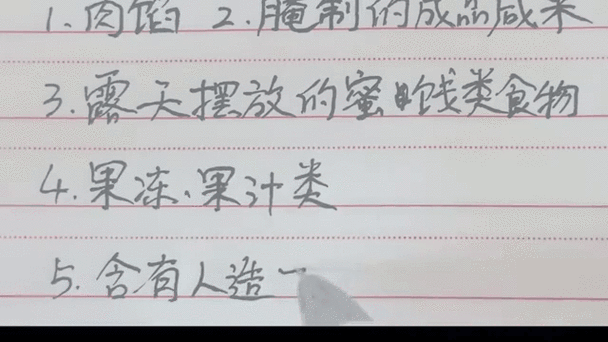 1.肉馅 2.腌制的成品咸菜
3.露天摆放的蜜饯类食物
4.果冻、果汁类
5.含有人造